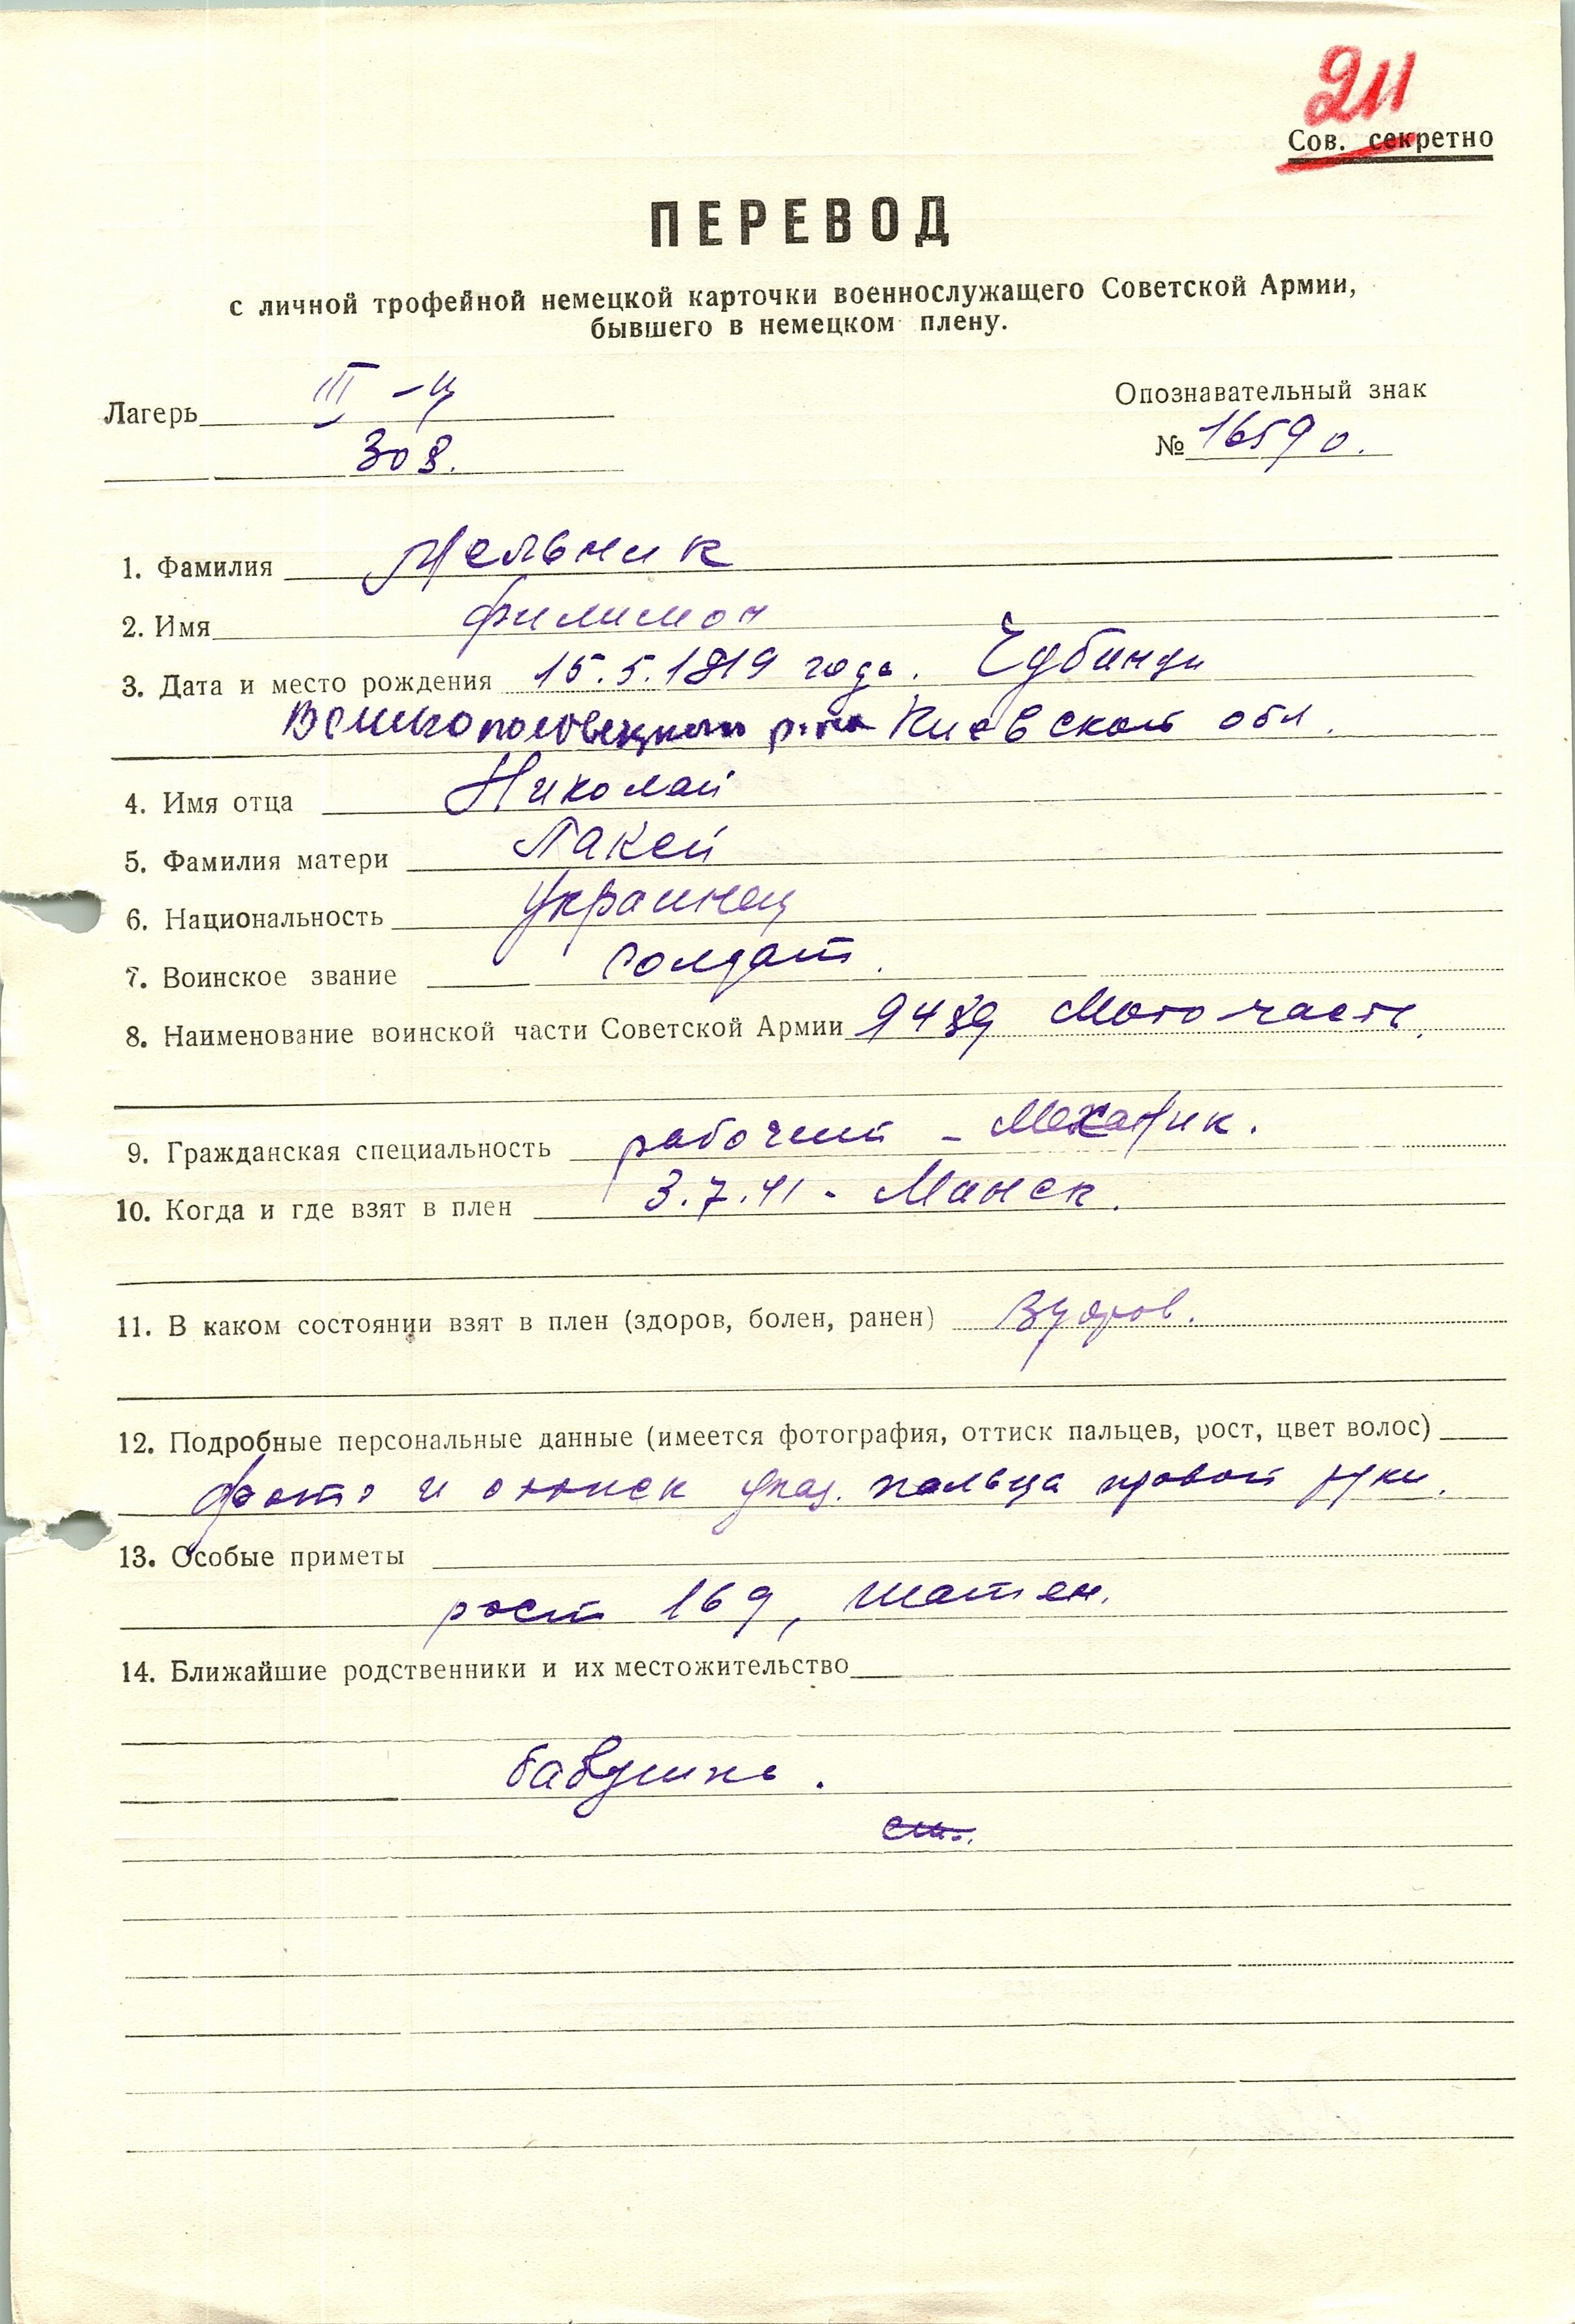 211
Сов. секретно
ПЕРЕВОД
с личной трофейной немецкой карточки военнослужащего Советской Армии,
бывшего в немецком плену.
Лагерь III-Ц
308.
Опознавательный знак
№ 16590.
1. Фамилия Мельник
2. Имя Филимон
3. Дата и место рождения 15.5.1919 года. Чубинцы
Великополовецкого р-на Киевской обл.
4. Имя отца Николай
5. Фамилия матери Лакей
6. Национальность Украинец
7. Воинское звание Солдат.
8. Наименование воинской части Советской Армии 9489 Мото-часть.
9. Гражданская специальность рабочий - Механик.
10. Когда и где взят в плен 3.7.41 - Минск.
11. В каком состоянии взят в плен (здоров, болен, ранен) Здоров.
12. Подробные персональные данные (имеется фотография, оттиск пальцев, рост, цвет волос)
фото и оттиск указ. пальца правой руки.
13. Особые приметы
рост 169, шатен.
14. Ближайшие родственники и их местожительство
бабушка.